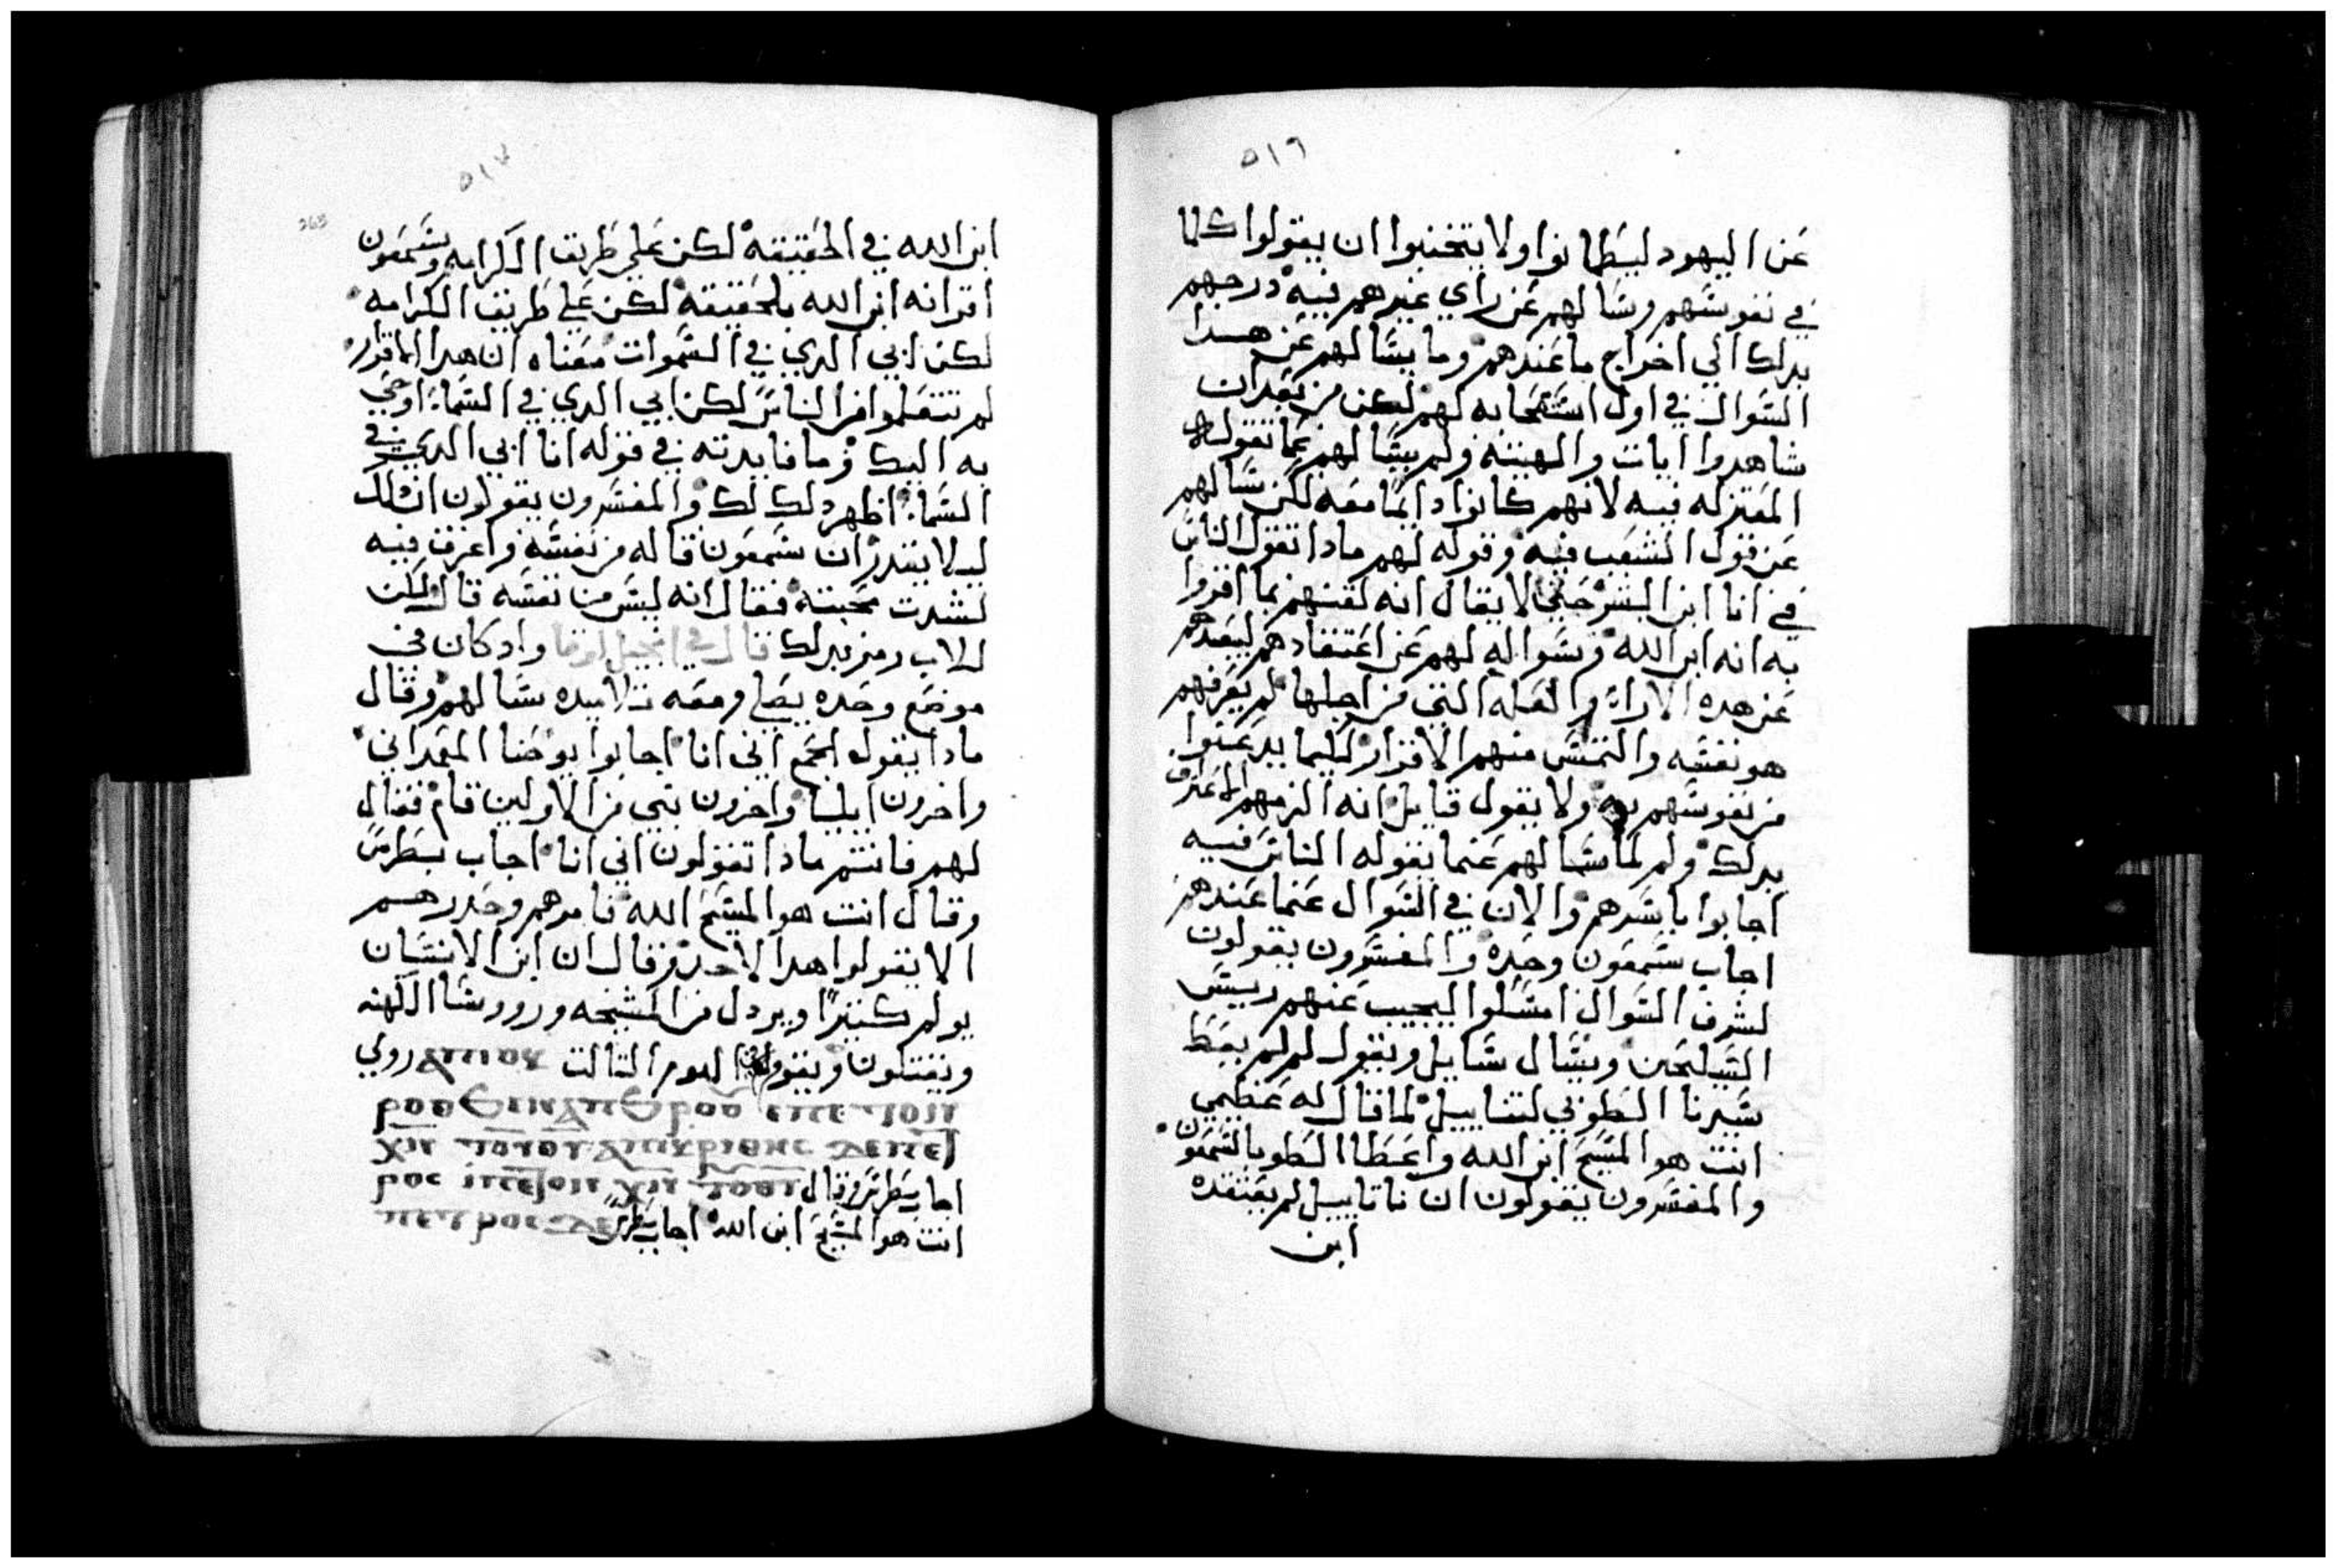 ٥١٦
عن اليهود ليطمانوا ولا يتجنبوا ان يقولوا كلما
في نفوسهم وسالهم عن راي غيرهم فيه درجهم
بدلك الي اخراج ما عندهم وما يسالهم عن هدا
السوال في اول استصحابه لهم لكن من بعد ان
شاهدوا ايات والهيته ولم يسالهم عما تقوله
المعتزله فيه لانهم كانوا دايما معه لكن سالهم
عن قول الشعب فيه وقوله لهم مادا تقول الناس
في انا ابن البشر حتي لا يقال انه لقنهم بما اقروا
به انه ابن الله وسواله لهم عن اعتقادهم ليبعدهم
عن هده الارا والعله التي من اجلها لم يعرفهم
هو نفسه والتمس منهم الاقرار لكيما يدعنوا
من نفوسهم به ولا يقول قايل انه الزمهم الاعتراف
بدلك ولم لما سالهم عنما يقوله الناس فيه
اجابوا باسرهم والان في السوال عنما عندهم
اجاب سمعون وحده والمفسرون يقولون
لشرف السوال امسلوا ليجيب عنهم رييس
السليحين ويسال سايل ويقول لم لم يعط
سيدنا الطوبي لنتاييل لما قال له عظيمي
انت هو المسيح ابن الله واعطا الطوبا لسمعون
والمفسرون يقولون ان ناتاييل لم يعتقده
ابن
٥١٧
265
ابن الله في الحقيقه لكن علي طريق الكرامه وسمعون
اقر انه ابن الله بلحقيقه لكن علي طريق الكرامه
لكن ابي الدي في السموات معناه ان هدا الاقرار
لم تتعلموا من الناس لكن ابي الدي في السما اوحي
به اليك وما فايدته في قوله انا ابي الدي في
السما اظهر دلك لك والمفسرون يقولون ان دلك
ليلا يقدر ان سمعون قاله من نفسه واعرف فيه
لشدت محبته فقال انه ليس من نفسه قال لكن
الاب رمز بدلك قال في انجيل لوقا واد كان في
موضع وحده يصلي ومعه تلاميده سالهم وقال
مادا يقول الجمع اني انا اجابوا يوحنا المعمداني
واخرون ايليا واخرون نبي من الاولين قام فقال
لهم فانتم مادا تقولون اني انا اجاب بطرس
وقال انت هو المسيح الله فامرهم وحدرهم
الا يقولوا هدا لاحد وقال ان ابن الانسان
يولم كتيرا ويردل من المشيخه وروسا الكهنه
ويقتلون ويقوم في اليوم التالت
اجاب بطرس وقال
انت هو المسيح ابن الله اجاب بطرس